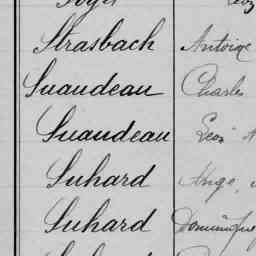 Strasbach Antoine
Suaudeau Charles
Suaudeau Léon
Suhard Ange
Suhard Dominique